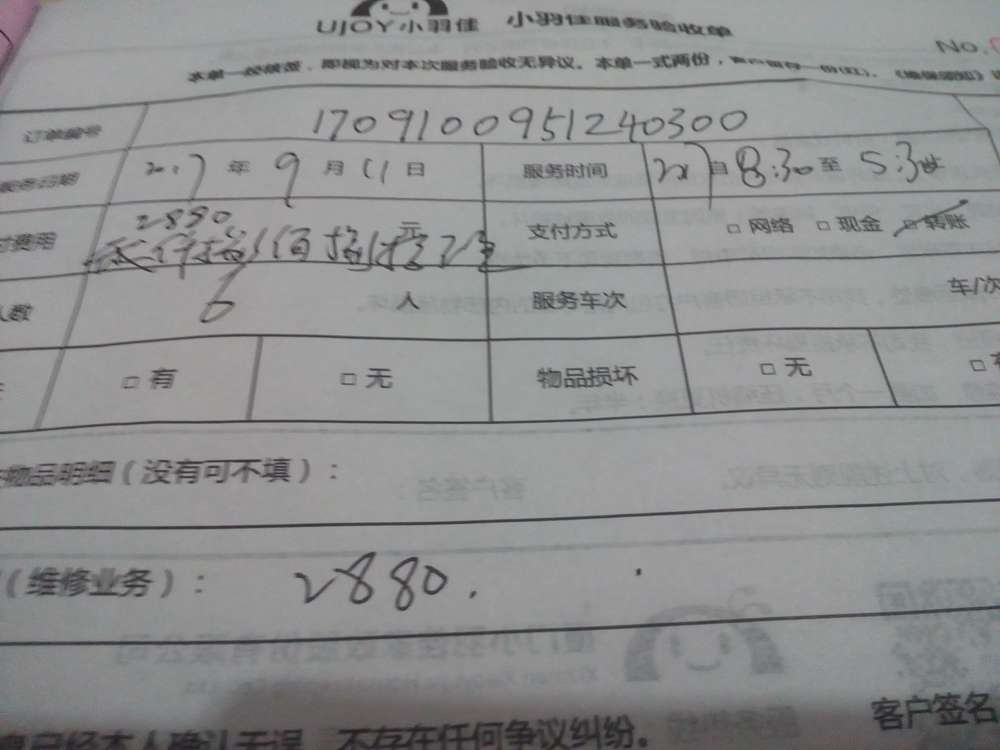 UJOY小羽佳 小羽佳服务验收单
No.
本单一经核签，即视为对本次服务验收无异议。本单一式两份，
订单编号 1709100951240300
服务日期 2017年9月11日 服务时间 自8:30至5:30
费用 2880 元 支付方式 □网络 □现金 □转账
人数 6 人 服务车次 车/次
□有 □无 物品损坏 □无 □有
物品明细（没有可不填）：
（维修业务）： 2880.
已经本人确认无误，不存在任何争议纠纷。
客户签名